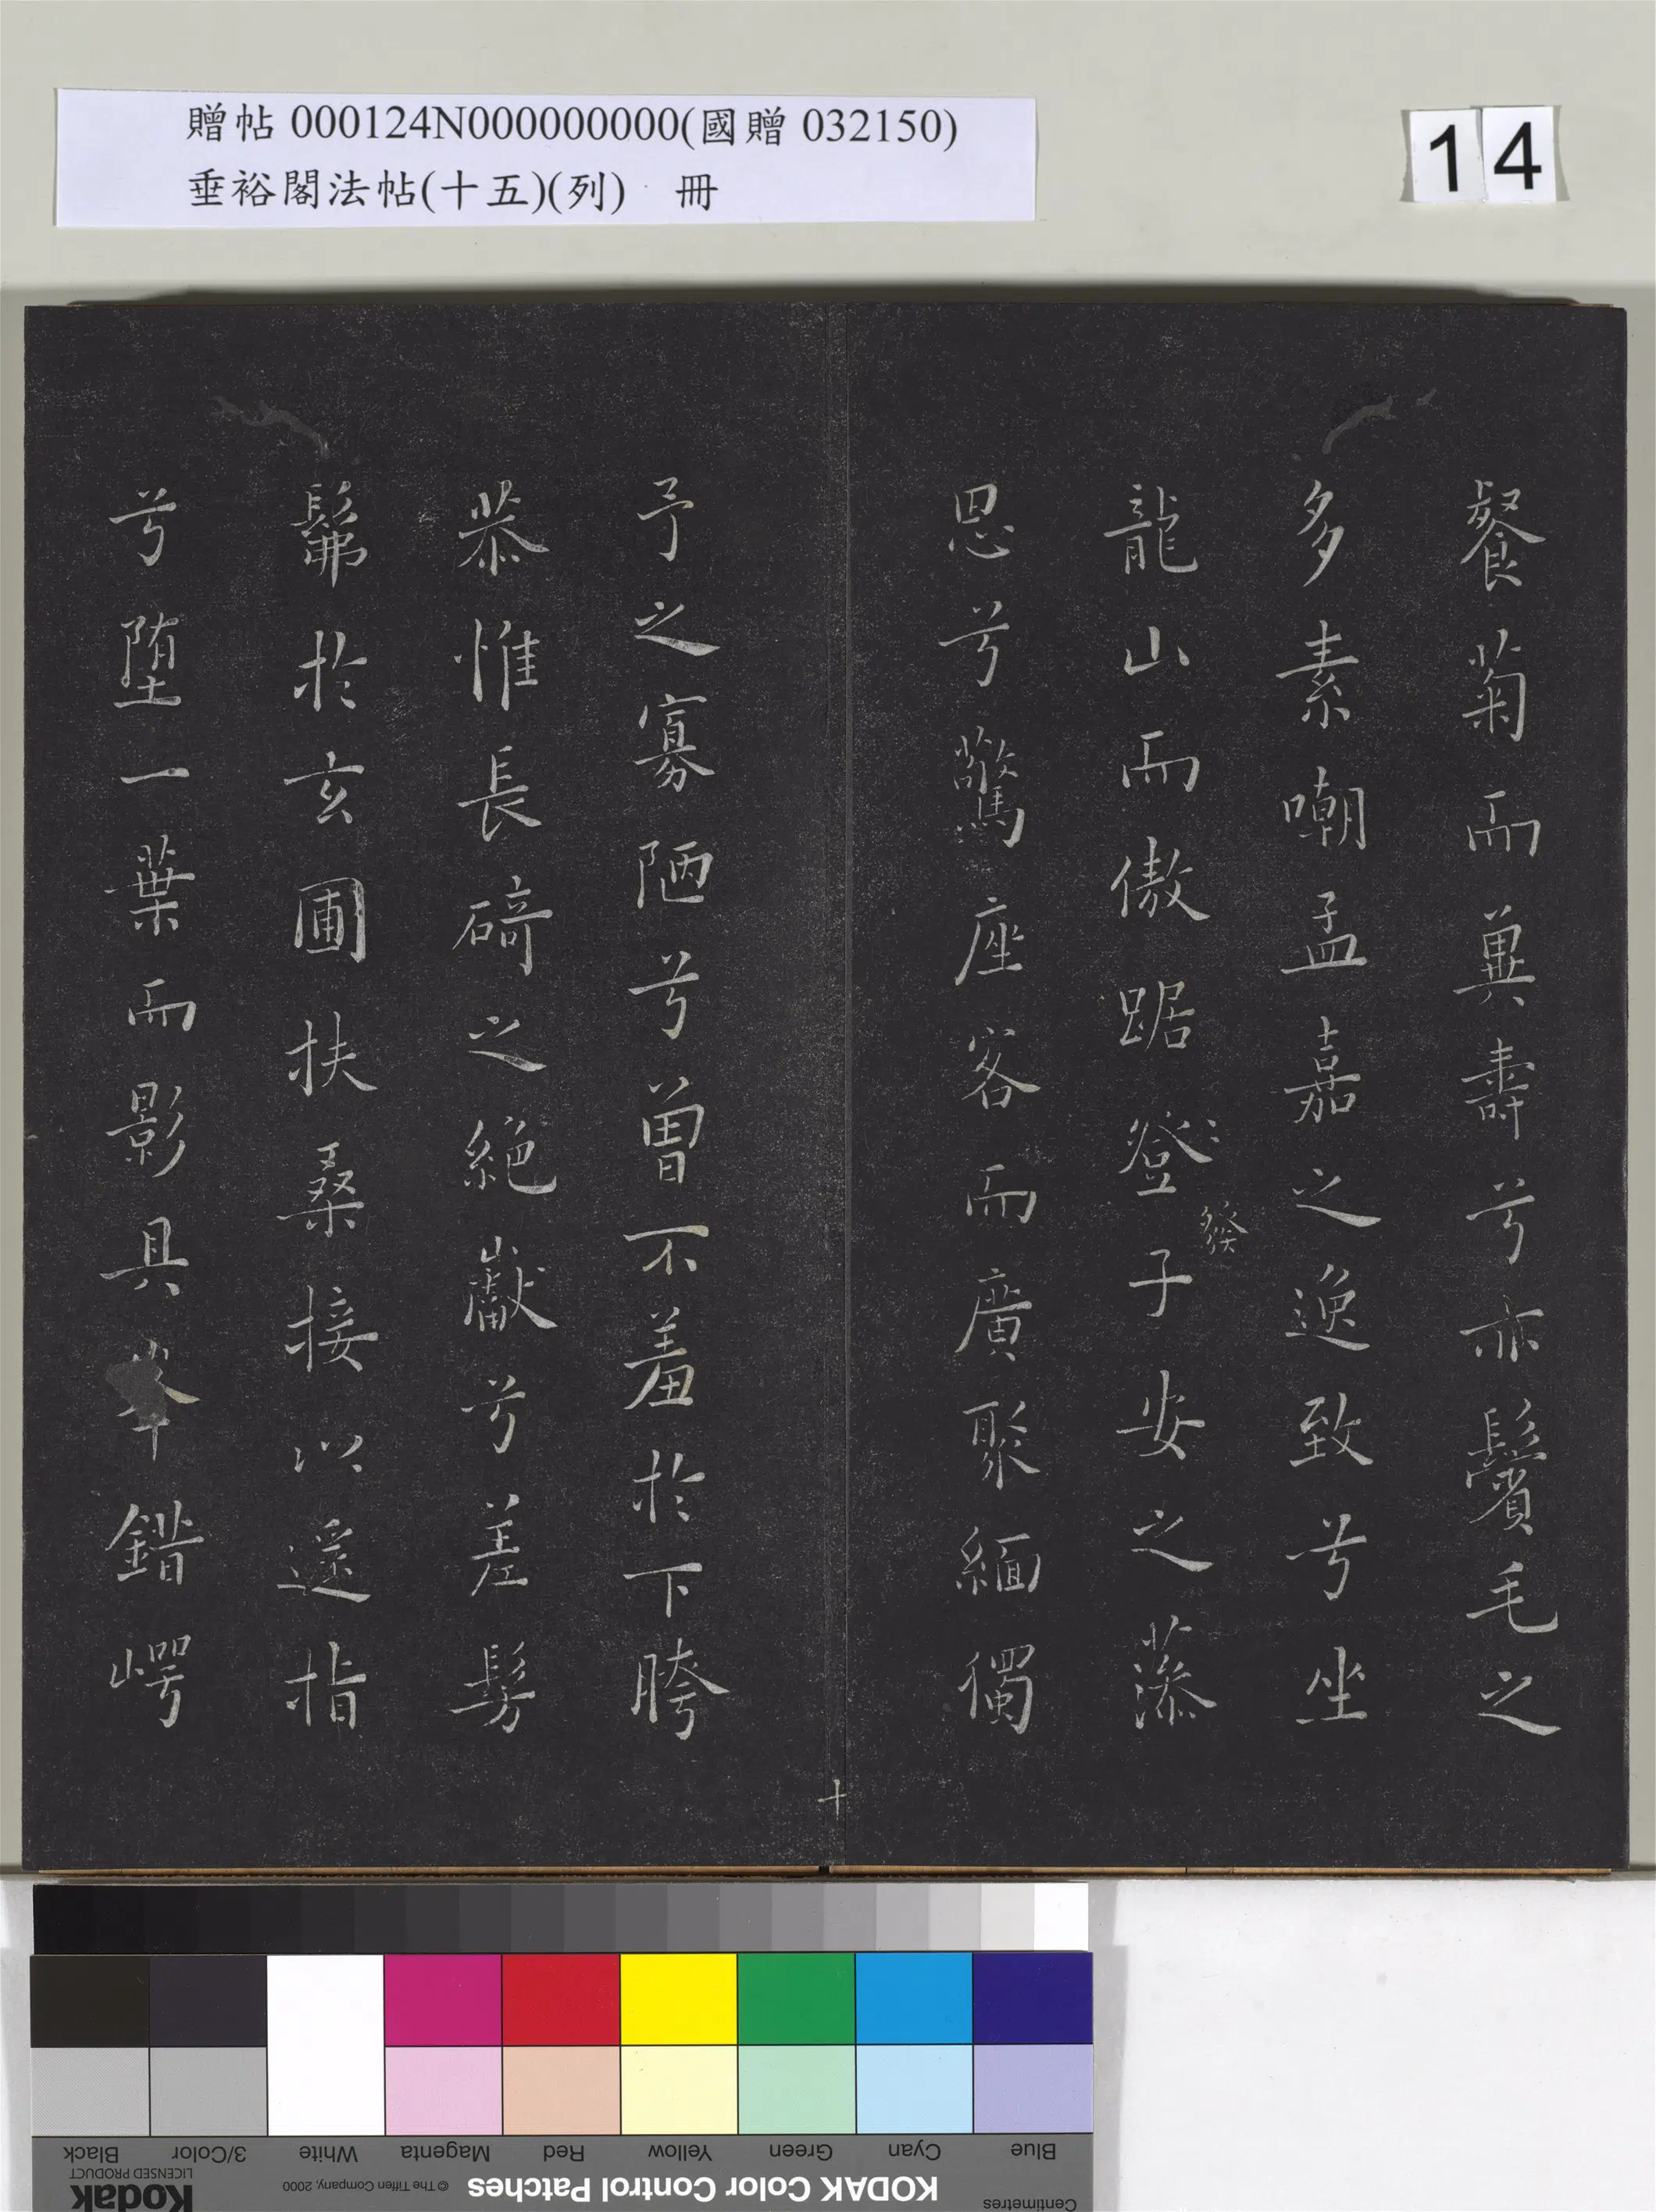 贈帖 000124N000000000(國贈 032150)
垂裕閣法帖(十五)(列) 冊
14
餐菊而兾壽兮亦鬢毛之
多素嘲孟嘉之逸致兮坐
龍山而傲踞登子安之藻
發
思兮驚座客而廣聚緬獨
予之寡陋兮曾不羞於下胯
恭惟長碕之絕巘兮差髣
髴於玄圃扶桑接以遥指
兮堕一葉而影具峯錯崿
十
Blue Cyan Green Yellow Red Magenta White 3/Color Black
KODAK Color Control Patches
© The Tiffen Company, 2000
Kodak
LICENSED PRODUCT
Centimetres